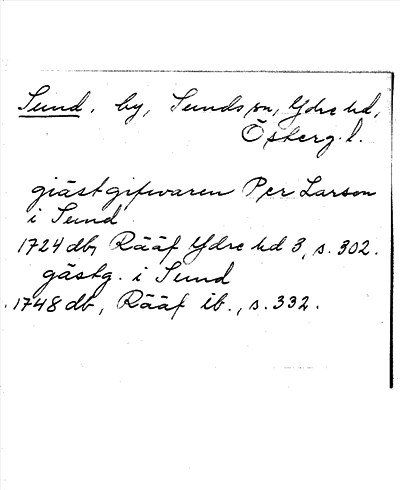 Sund, by, Sunds sn, Ydre hd,
Östergl.
giästgifwaren Per Larson
i Sund
1724 db, Rääf Ydre hd 3, s. 302.
gästg. i Sund
1748 db, Rääf ib., s. 332.